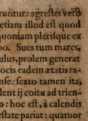 runtur: agrestes verò
etiam illud est quod
quoniam plerisque ex
bo. Sues tum mares,
ulus, prolem generat
ocis eadem ætatis ra-
nse: sexto tamen ita,
lent ij coitu ad trien-
o: hoc est, à calendis
state pariat: quatuor